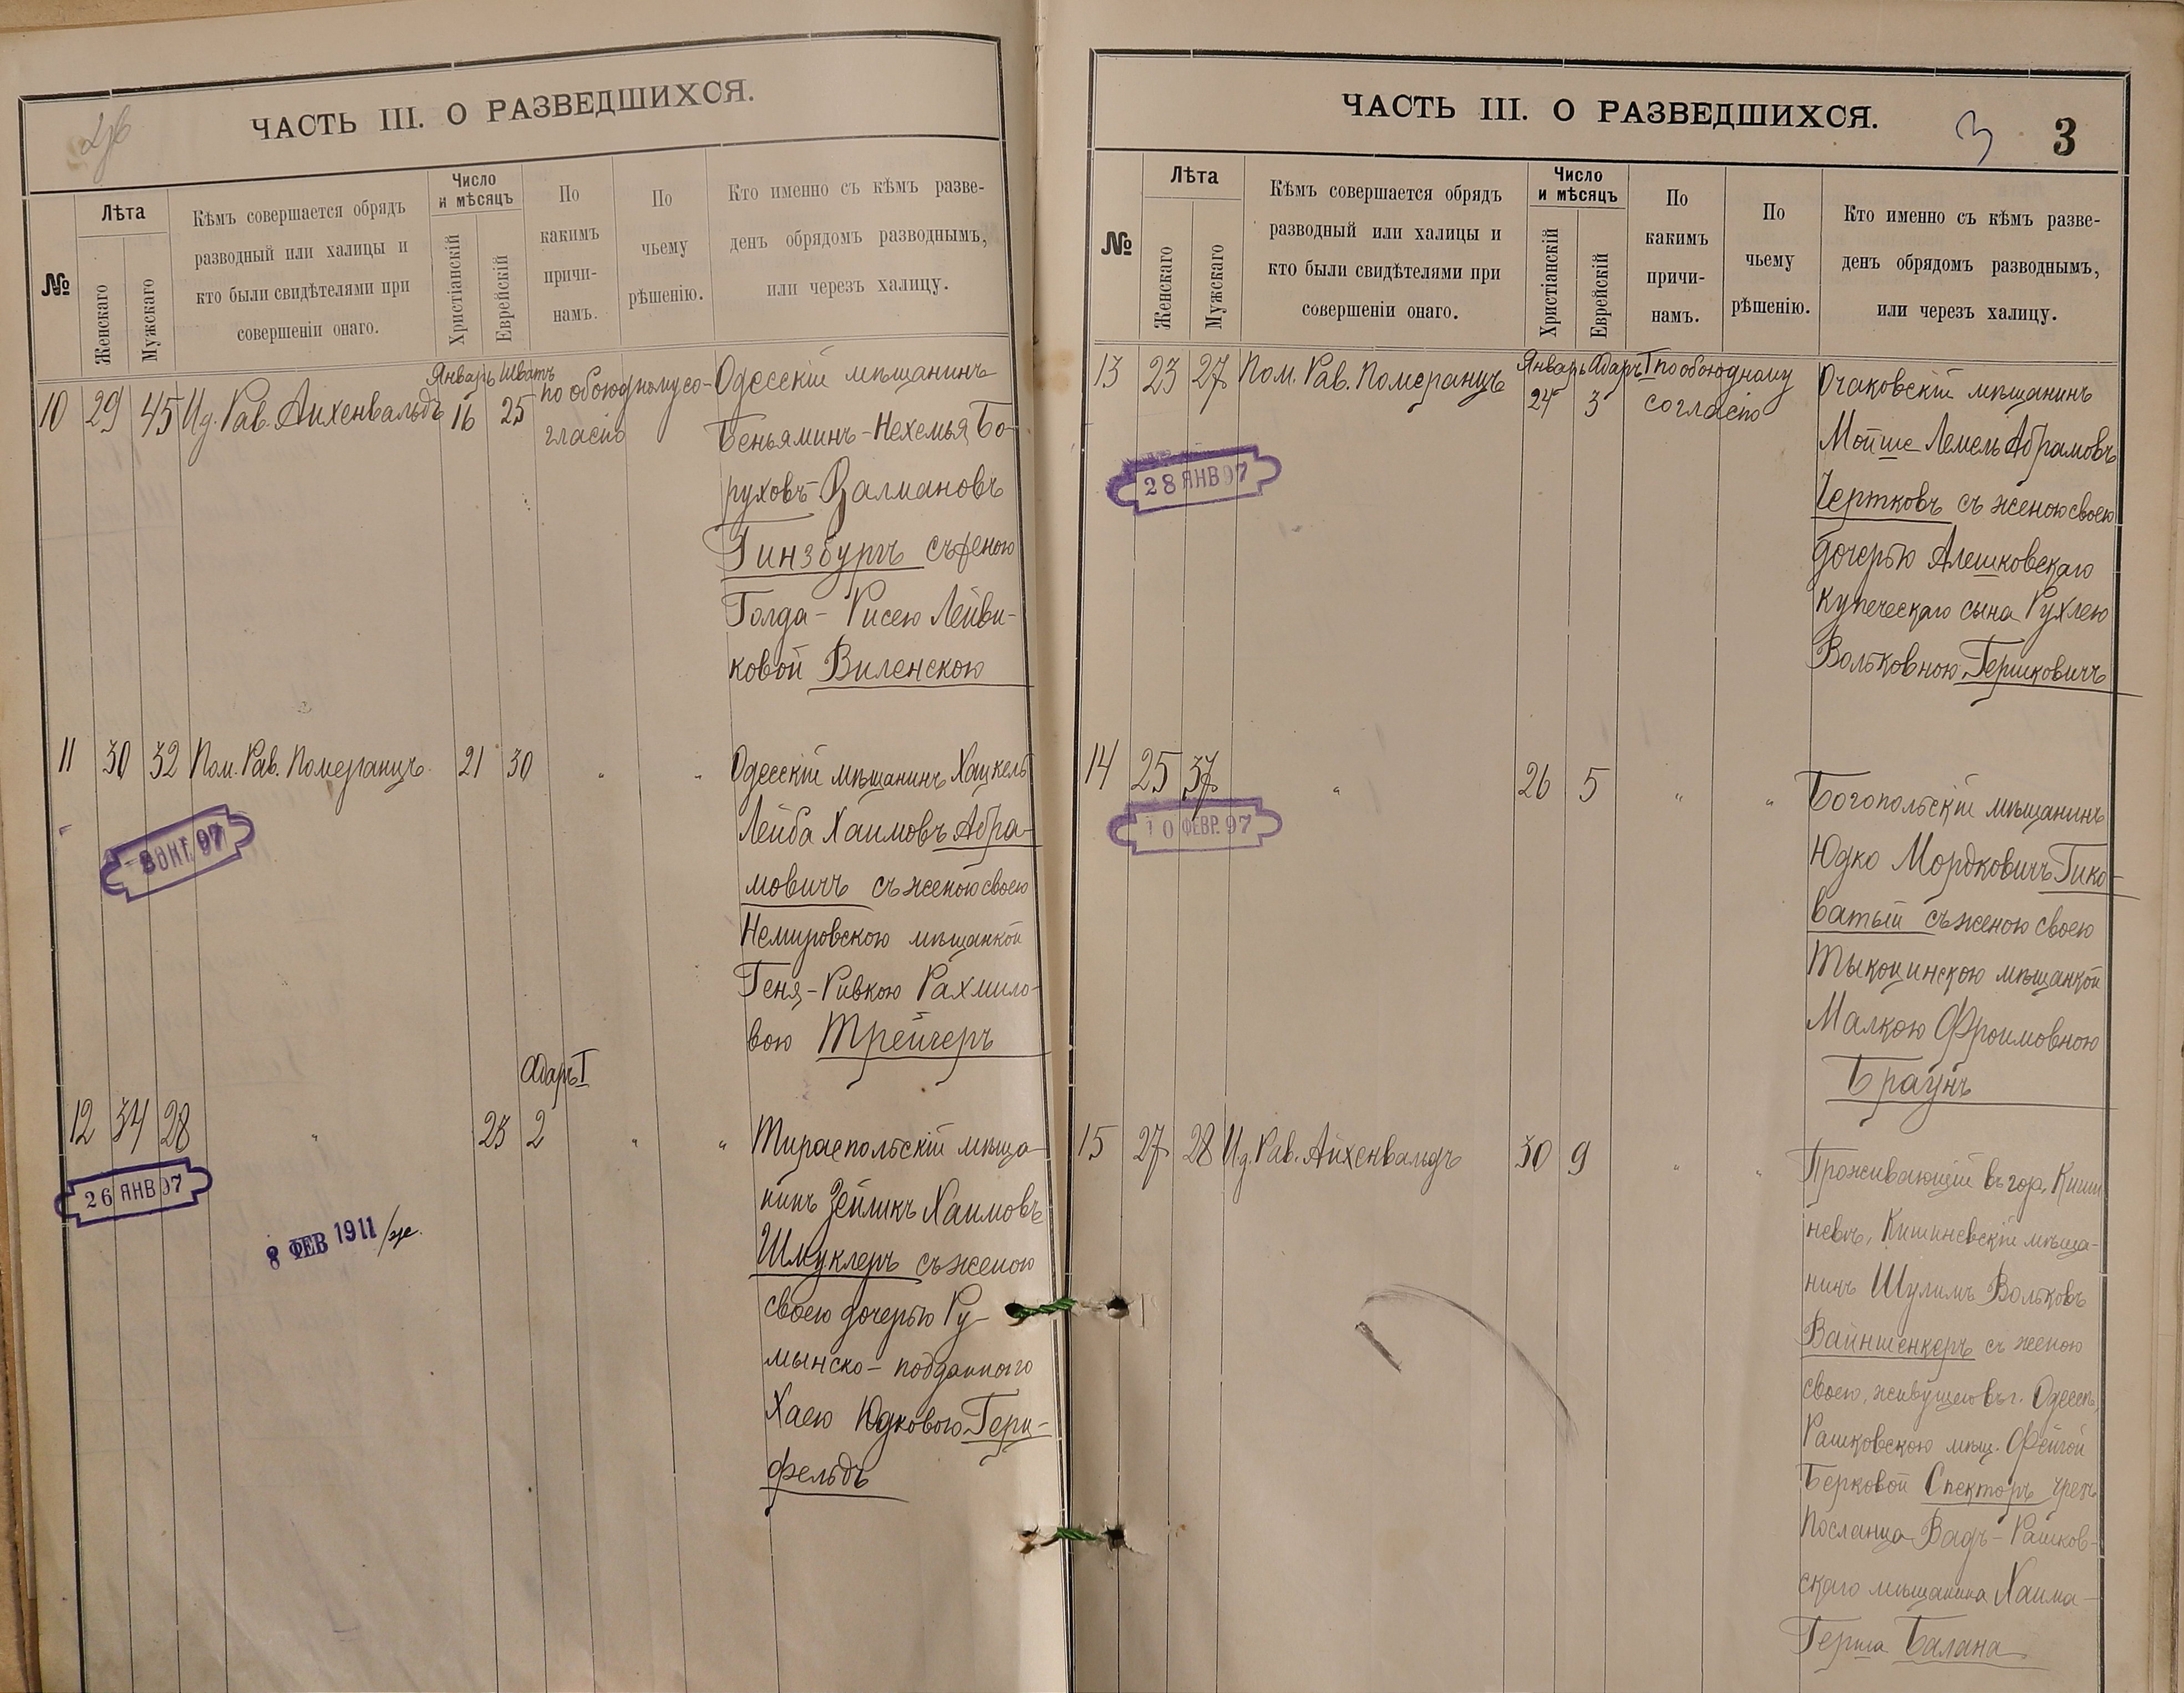 ЧАСТЬ III. О РАЗВЕДШИХСЯ.
№
Лѣта
Женскаго
Мужскаго
Кѣмъ совершается обрядъ
разводный или халицы и
кто были свидѣтелями при
совершеніи онаго.
Число
и мѣсяцъ
Христіанскій
Еврейскій
По
какимъ
причи-
намъ.
По
чьему
рѣшенію.
Кто именно съ кѣмъ разве-
денъ обрядомъ разводнымъ,
или черезъ халицу.
Январь Шватъ
10 29 45 Ид. Рав. Айхенвальдъ 16 25 по обоюдному со-
гласію
Одесскій мѣщанинъ
Беньяминъ-Нехемья Бо-
руховъ-Залмановъ
Гинзбургъ съ женою
Голда-Рисею Лейви-
ковой Виленскою
11 30 32 Пом. Рав. Померанцъ 21 30 " "
Одесскій мѣщанинъ Хацкель
Лейба Хаимовъ Абра-
мовичъ съ женою своею
Немировскою мѣщанкой
Геня-Ривкою Рахмило-
вою Трейгеръ
ОКТ. 97
Адаръ I
12 34 28 " 23 2 " "
Тираспольскій мѣща-
нинъ Зейликъ Хаимовъ
Шмуклеръ съ женою
своею дочерью Ру-
мынско-подданного
Хаею Юдковою Герц-
фельдъ
26 ЯНВ 97
8 ФЕВ 1911
ЧАСТЬ III. О РАЗВЕДШИХСЯ.
3
3
№
Лѣта
Женскаго
Мужскаго
Кѣмъ совершается обрядъ
разводный или халицы и
кто были свидѣтелями при
совершеніи онаго.
Число
и мѣсяцъ
Христіанскій
Еврейскій
По
какимъ
причи-
намъ.
По
чьему
рѣшенію.
Кто именно съ кѣмъ разве-
денъ обрядомъ разводнымъ,
или черезъ халицу.
Январь Адаръ I
13 23 27 Пом. Рав. Померанцъ 24 3 по обоюдному
согласію
Очаковскій мѣщанинъ
Мойше Лемель Абрамовъ
Чертковъ съ женою своею
дочерью Алешковскаго
купеческаго сына Рухлею
Вольковною Гершковичъ
28 ЯНВ 97
14 25 37 " 26 5 " "
Богопольскій мѣщанинъ
Юдко Мордковичъ Гико-
ватый съ женою своею
Тыкоцинскою мѣщанкой
Малкою Фроимовною
Браунъ
10 ФЕВР. 97
15 27 28 Ид. Рав. Айхенвальдъ 30 9 " "
Проживающій въ гор. Киши-
невѣ, Кишиневскій мѣща-
нинъ Шулимъ Вольковъ
Вайншенкеръ съ женою
своею, живущею въ г. Одессѣ,
Рашковскою мѣщ. Фейгой
Берковой Спекторъ чрезъ
посланца Вадъ-Рашков-
скаго мѣщанина Хаима-
Герша Балана